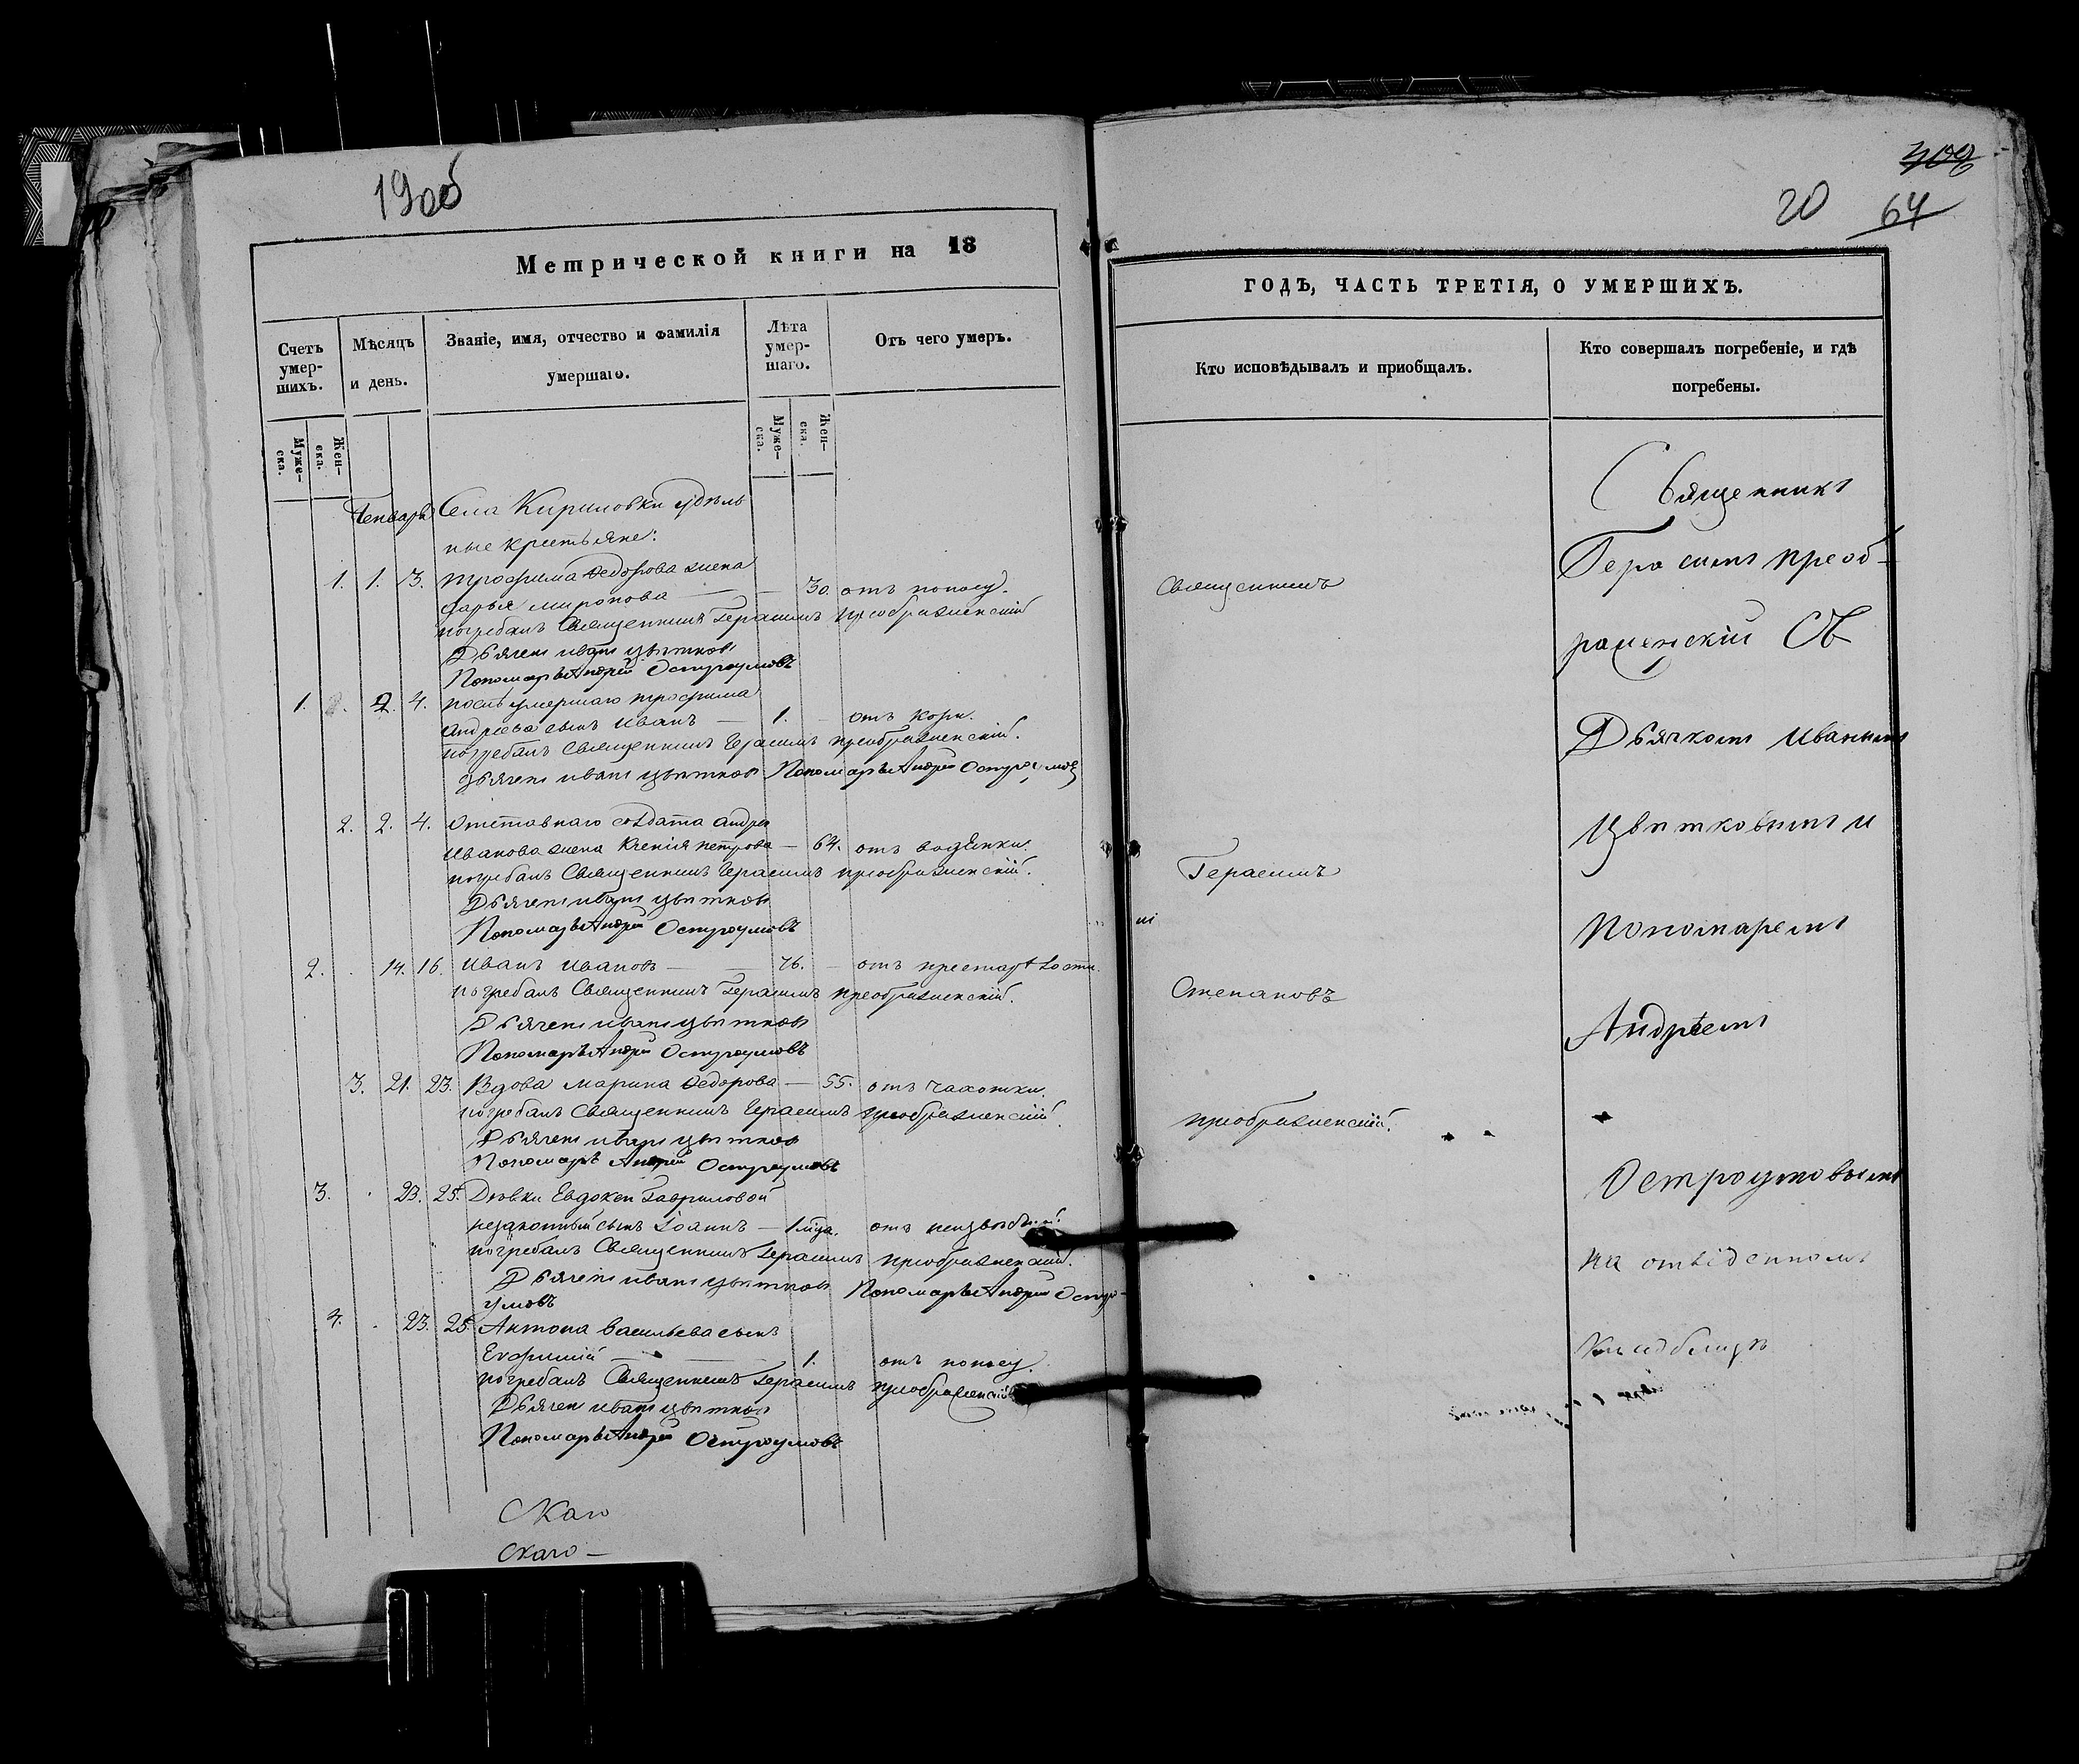 19 об
Метрической книги на 18
Счетъ умер-шихъ.
Мѣсяцъ и день.
Званіе, имя, отчество и фамилія умершаго.
Лѣта умер-шаго.
Отъ чего умеръ.
Муже-ска.
Жен-ска.
Муже-ска.
Жен-ска.
Генварь Села Кириловки удѣль
ные крестьяне:
1. 1. 3. трофима Федорова жена
дарья миронова — 30. отъ поносу.
погребалъ Священникъ Герасимъ преображенскій
Дьячекъ иванъ цвѣтковъ
Пономарь Андрей Остроумовъ
1. 2. 4. послѣ умершаго трофима
андреева сынъ иванъ — 1. отъ кори.
погребалъ Священникъ Герасимъ преображенскій.
дьячекъ иванъ цвѣтковъ Пономарь Андрей Остроумовъ
2. 2. 4. Отставнаго солдата андрея
иванова жена Ксенія петрова — 64. отъ водянки.
погребалъ Священникъ Герасимъ преображенскій.
Дьячекъ иванъ цвѣтковъ
Пономарь Андрей Остроумовъ
2. 14. 16. Иванъ Ивановъ — 76. отъ престарѣлости.
погребалъ Священникъ Герасимъ преображенскій.
Дьячекъ иванъ цвѣтковъ
Пономарь Андрей Остроумовъ
3. 21. 23. Вдова Марина Федорова — 55. отъ чахотки.
погребалъ Священникъ Герасимъ преображенскій.
Дьячекъ иванъ цвѣтковъ
Пономарь Андрей Остроумовъ
3. 23. 25. Дѣвки Евдокеи Гавриловой
незаконный сынъ Іоаннъ — 1 мца. отъ
погребалъ Священникъ Герасимъ преображенскій.
Дьячекъ иванъ цвѣтковъ Пономарь Андрей Остро-
умовъ
4. 23. 25. Антона васильева сынъ
Евфимій — 1. отъ поносу.
погребалъ Священникъ Герасимъ преображенскій
Дьячекъ иванъ цвѣтковъ
Пономарь Андрей Остроумовъ
Скаго
Скаго —
20 64
ГОДЪ, ЧАСТЬ ТРЕТІЯ, О УМЕРШИХЪ.
Кто исповѣдывалъ и приобщалъ.
Кто совершалъ погребеніе, и гдѣ погребены.
Священникъ
Герасимъ
Степановъ
преображенскій.
Священникъ
Герасимъ преоб-
раженскій Съ
Дьячкомъ Иваномъ
Цвѣтковымъ и
Пономаремъ
Андреемъ
Остроумовымъ
на отведенномъ
кладбищѣ